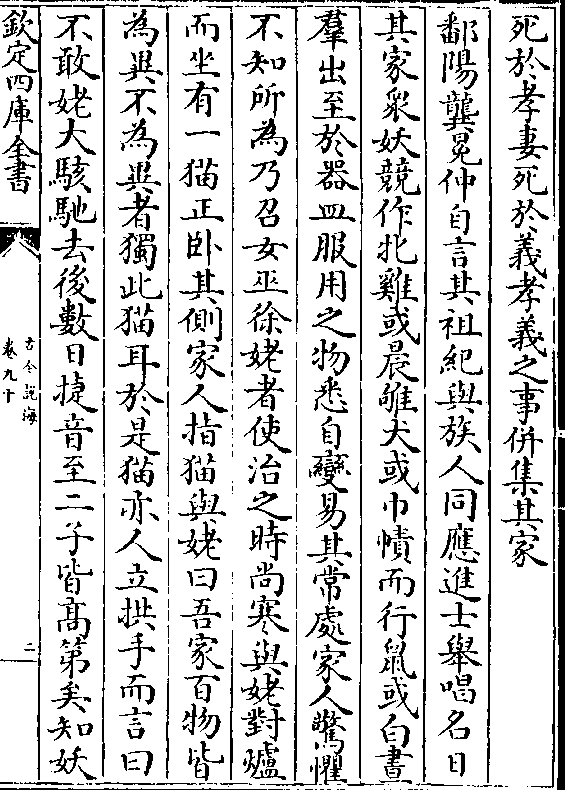 死於孝妻死於義孝義之事併集其家
鄱陽龔冕仲自言其祖紀與族人同應進士舉唱名日
其家衆妖競作牝雞或晨雊犬或巾幘而行鼠或白晝
羣出至於器皿服用之物悉自變易其常處家人驚懼
不知所為乃召女巫徐姥者使治之時尚寒與姥對爐
而坐有一猫正卧其側家人指猫與姥曰吾家百物皆
為異不為異者獨此猫耳於是猫亦人立拱手而言曰
不敢姥大駭馳去後數日捷音至二子皆髙第矣知妖
欽定四庫全書
古今說海
卷九十
二